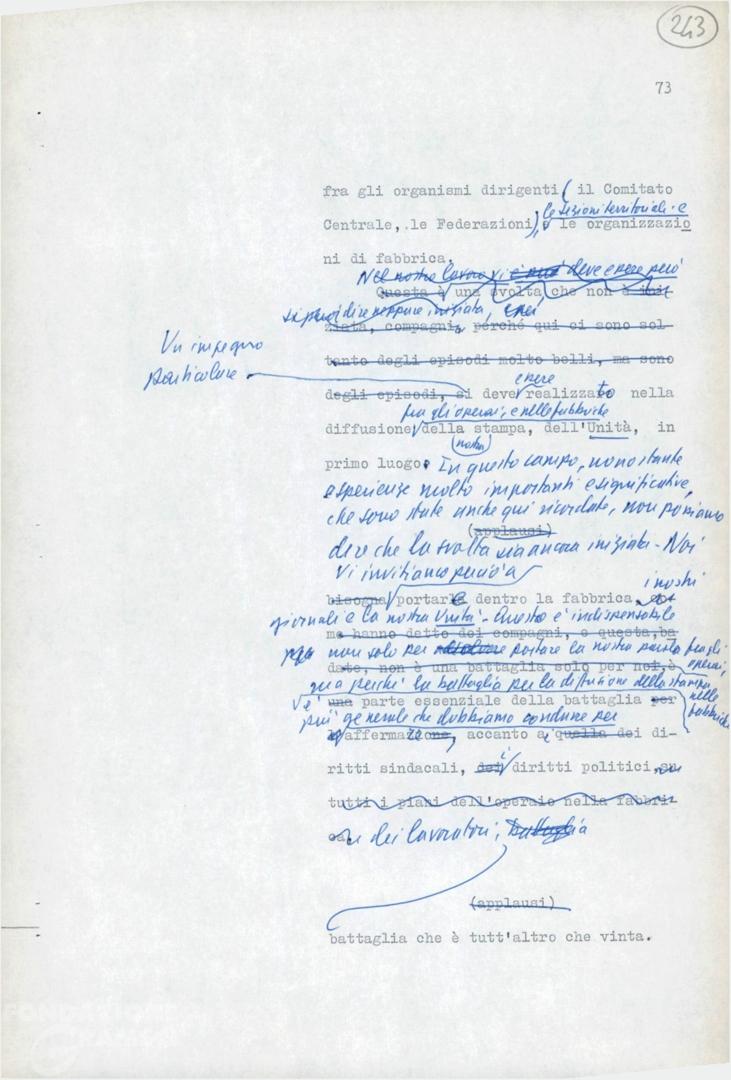 243
73
fra gli organismi dirigenti ( il Comitato
le sezioni territoriali e
Centrale, le Federazioni), le organizzazio
ni di fabbrica.
Nel nostro lavoro vi deve essere però
Questa è una svolta che non è ini-
si può dire neppure iniziata,
ziata, compagni, perché qui ci sono sol-
Un impegno
tanto degli episodi molto belli, ma sono
particolare
essere
degli episodi, si deve realizzato nella
fra gli operai, e nelle fabbriche
diffusione della stampa, dell'Unità, in
nostra
primo luogo. In questo campo, nonostante
esperienze molto importanti e significative,
che sono state anche qui ricordate, non possiamo
(applausi)
dire che la svolta sia ancora iniziata - Noi
vi invitiamo perciò a
i nostri
bisogna portare dentro la fabbrica,
giornali e la nostra Unità. Questo è indispensabile
me hanno detto dei compagni, e questa, ba
non solo per portare la nostra parola fra gli
operai,
date, non è una battaglia solo per noi, è
nelle
fabbriche
ma perché la battaglia per la diffusione della stampa
è una parte essenziale della battaglia per
più generale che dobbiamo condurre per
l'affermazione, accanto a quella dei di-
ritti sindacali, dei i diritti politici, su
tutti i piani dell'operaio nella fabbri-
ca. dei lavoratori, battaglia
(applausi)
battaglia che è tutt'altro che vinta.
FONDAZIONE
GRAMSCI